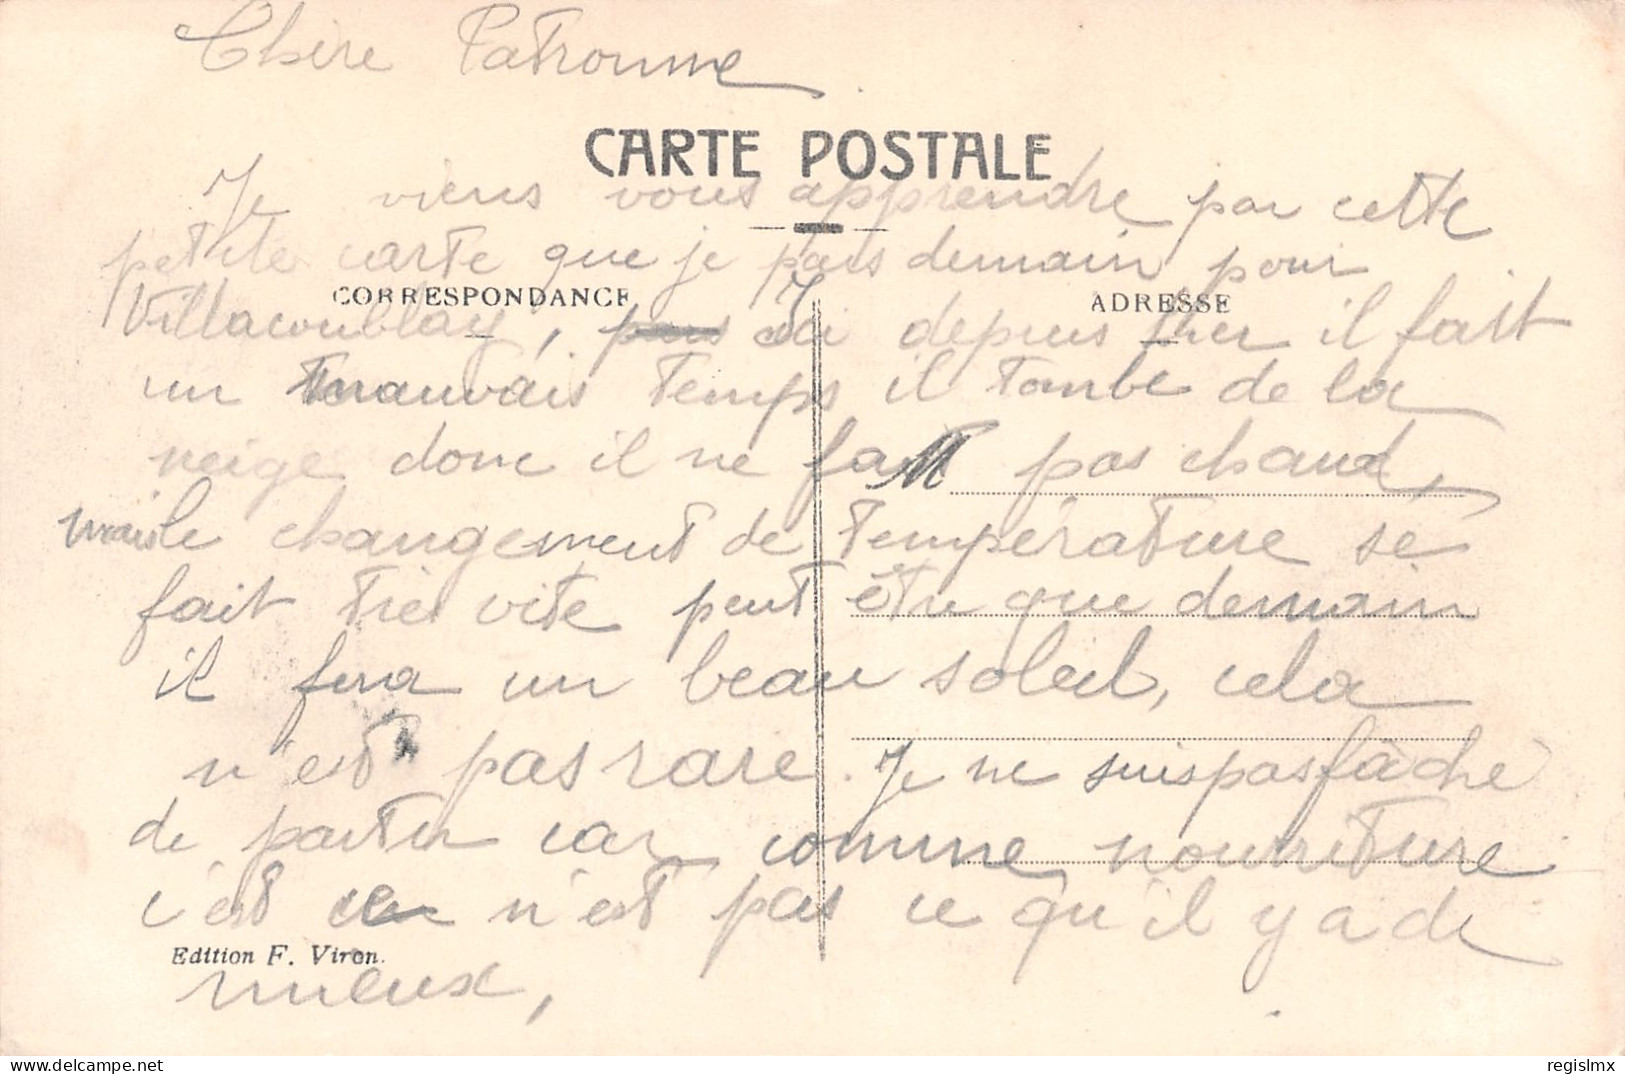 Chère Patronne
CARTE POSTALE
Je viens vous apprendre par cette
petite carte que je pars demain pour
CORRESPONDANCE
ADRESSE
Villacoublay, pars Ici depuis hier il fait
un mauvais temps il tombe de la
neige donc il ne fait pas chaud,
M
mais le changement de température se
fait très vite peut être que demain
il fera un beau soleil, cela
n'est pas rare. Je ne suis pas fâché
de partir car comme nourriture
c'est ce n'est pas ce qu'il y a de
Edition F. Viron.
mieux,
delcampe.net
regislmx